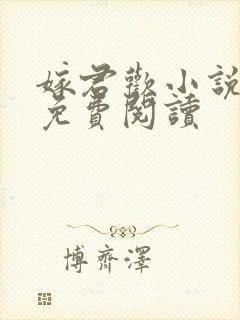 嫁君歡小說
免費閱讀
博齊澤